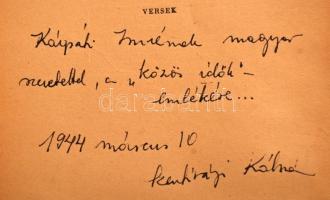 VERSEK
Kárpáti Imrének magyar
szeretettel, a "közös idők"-
emlékére...
1944 március 10
Kálmán